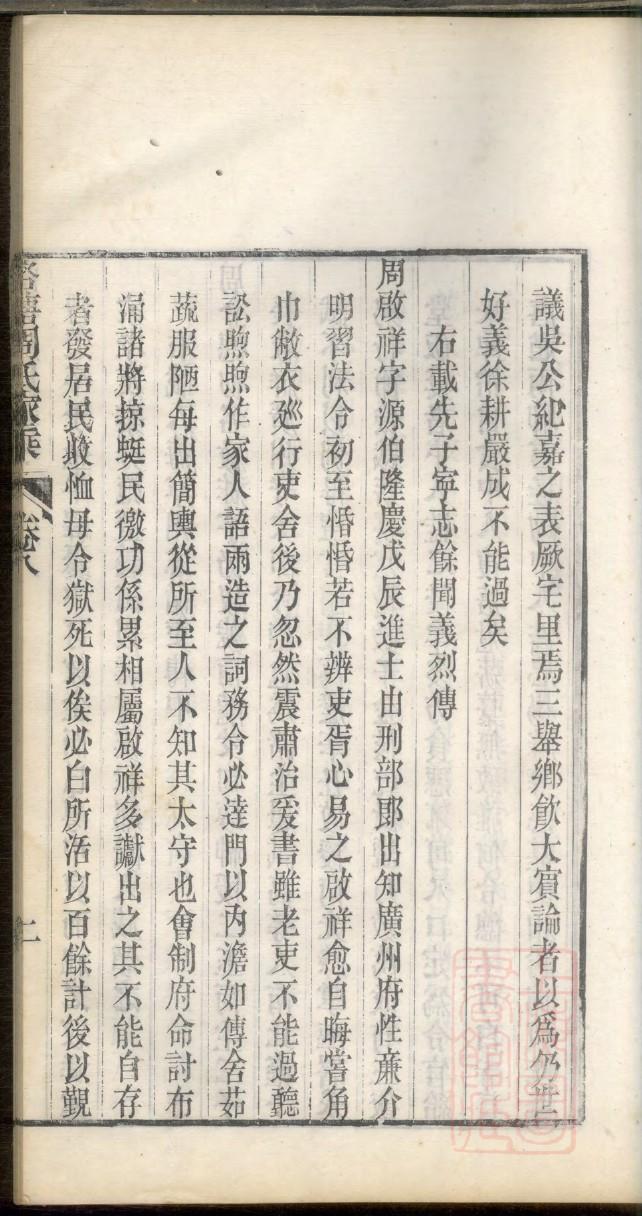 議吳公紀嘉之表厥宅里焉三舉鄉飲大賓論者以為
好義徐耕嚴成不能過矣
右載先子寧志餘聞義烈傳
周啟祥字源伯隆慶戊辰進士由刑部郎出知廣州府性亷介
明習法令初至惛惛若不辨吏胥心易之啟祥愈自晦嘗角
巾敝衣廵行吏舍後乃忽然震肅治爰書雖老吏不能過聽
訟煦煦作家人語兩造之詞務令必達門以內澹如傳舍茹
蔬服陋每出簡輿從所至人不知其太守也會制府命討布
涌諸將掠蜓民徼功係累相屬啟祥多讞出之其不能自存
者發居民收恤毋令獄死以俟必白所活以百餘計後以覲
周氏家乘
卷八